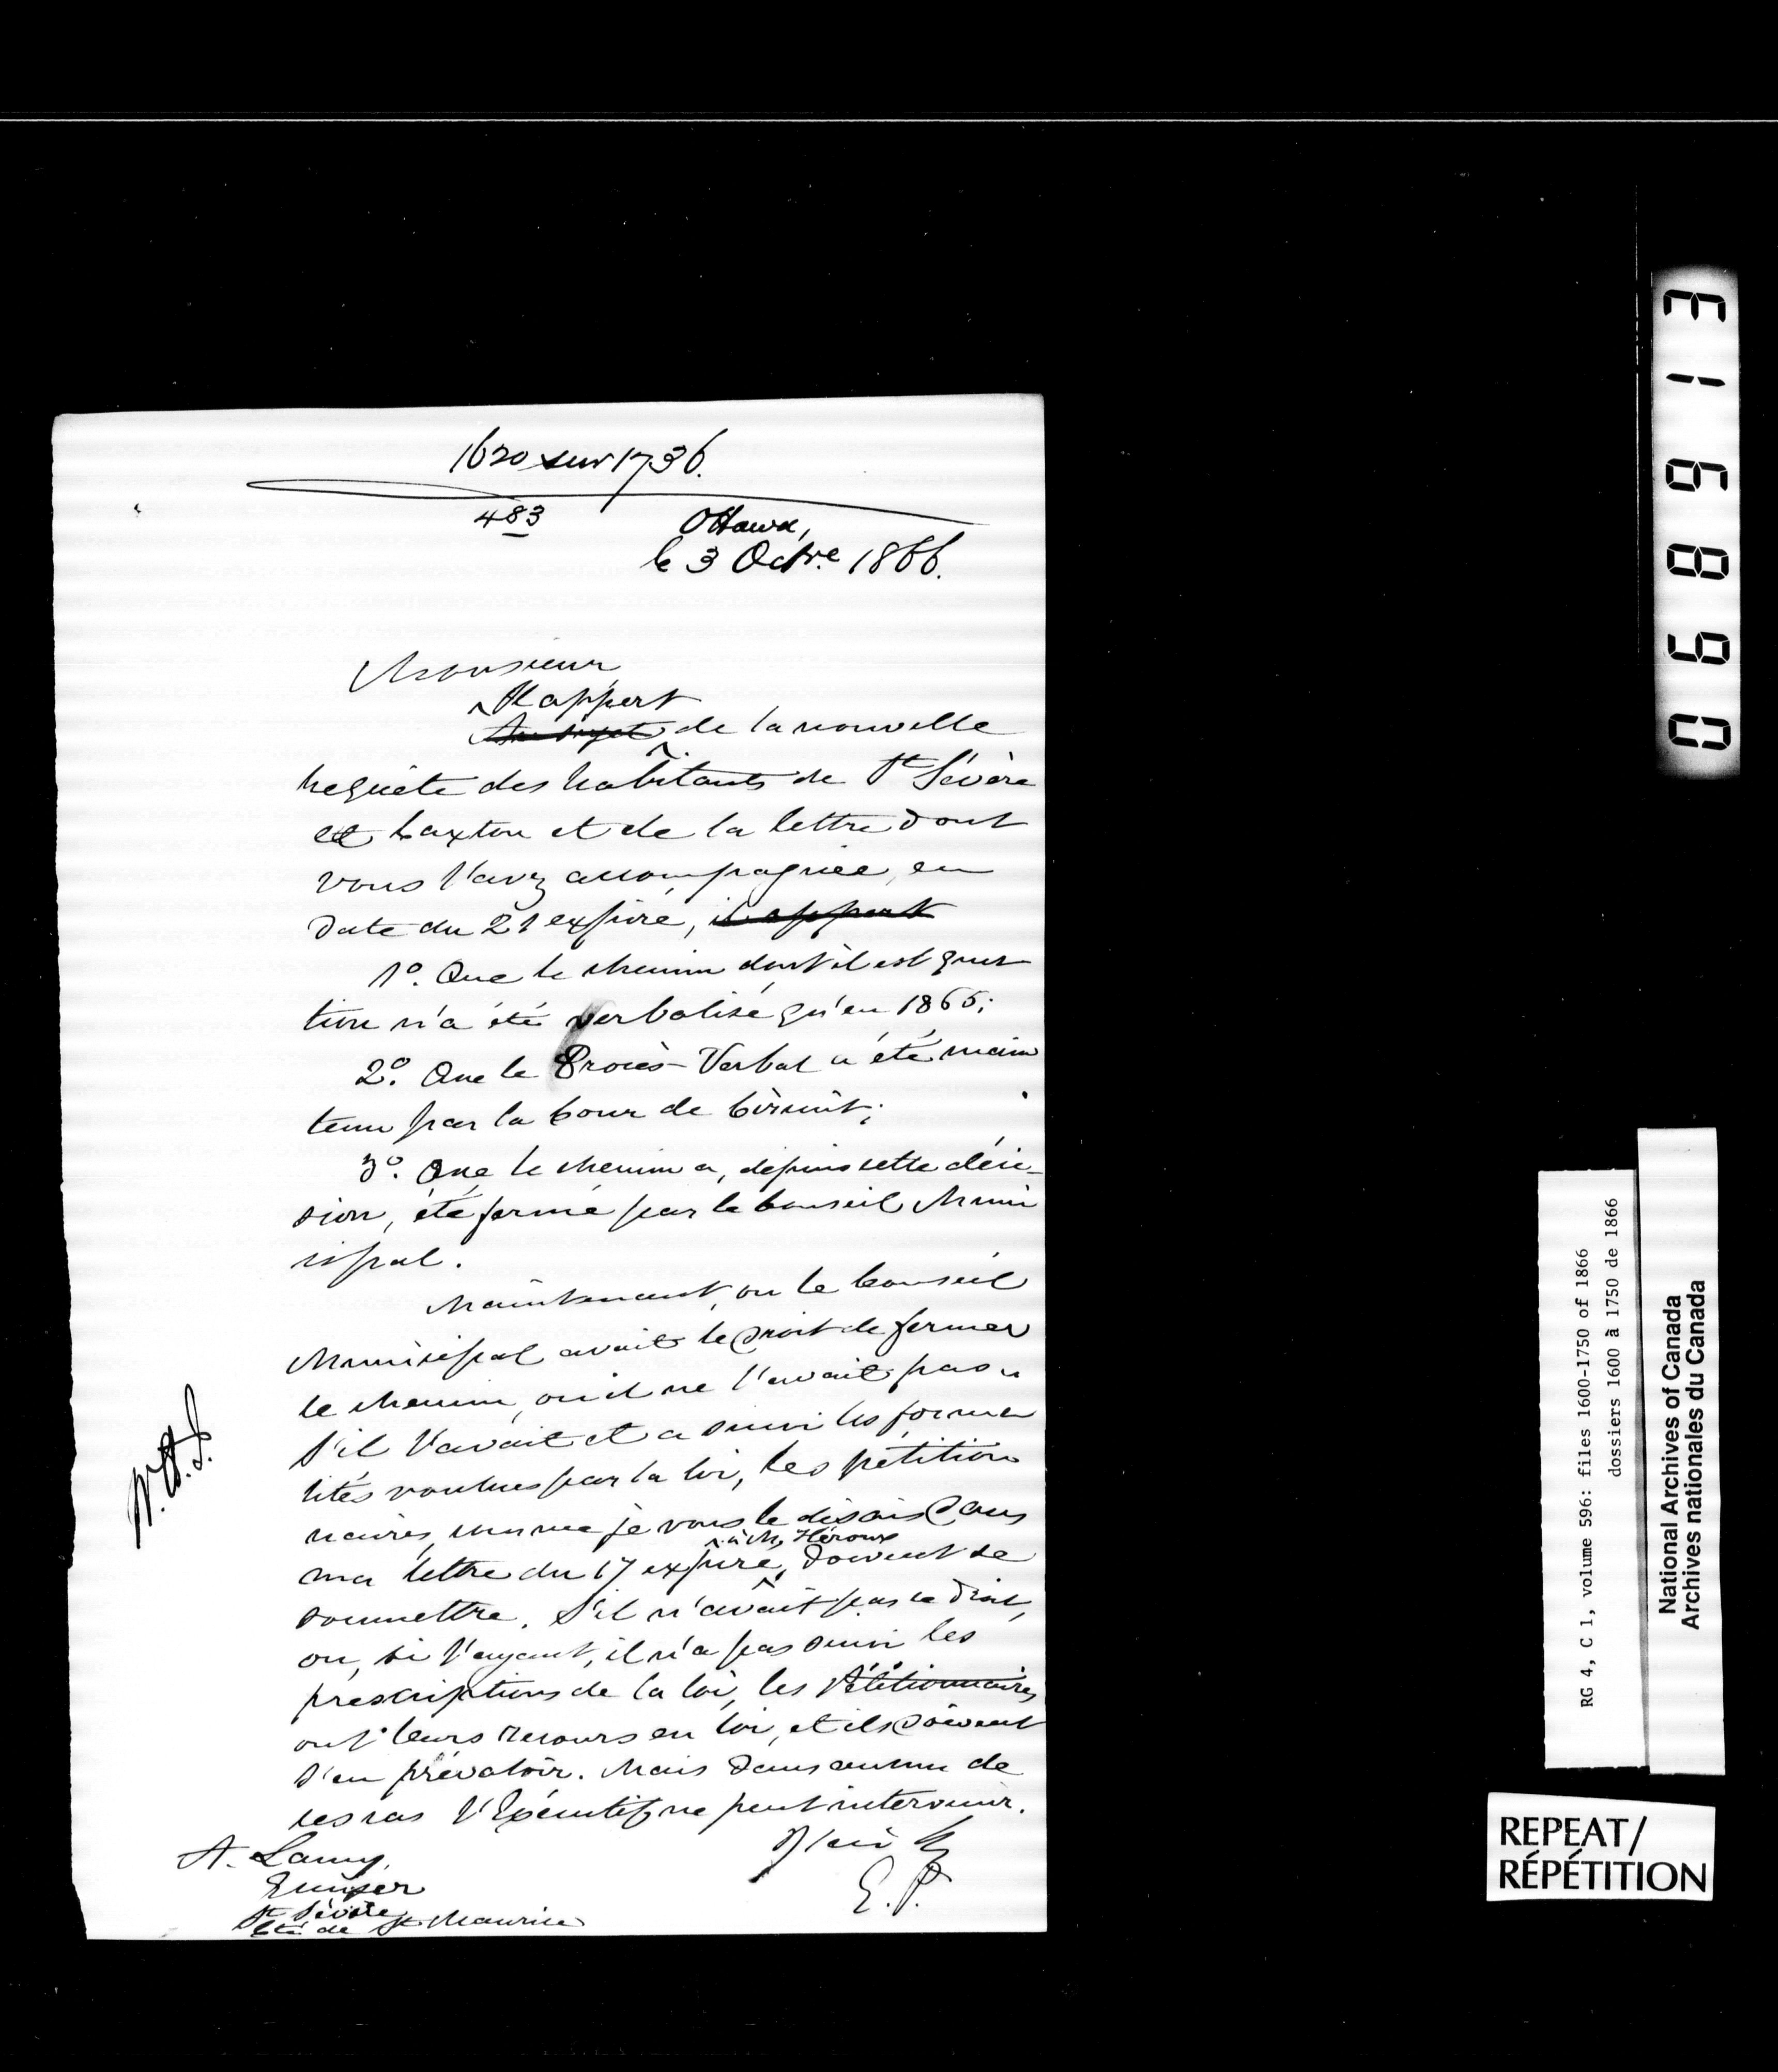 1620 sur 1736.
483
Ottawa,
le 3 Octre. 1866.
Monsieur
Il appert
Au sujet de la nouvelle
requête des habitants de St Sévère
et Caxton et de la lettre dont
vous l'avez accompagnée, en
date du 21 expiré, il appert
1o. Que le chemin dont il est ques
tion n'a été verbalisé qu'en 1865;
2o. Que le Procès-Verbal a été main
tenu par la Cour de Circuit;
3o. Que le chemin a, depuis cette déci-
sion, été fermé par le Conseil Muni
cipal.
Maintenant, ou le Conseil
Municipal avait le droit de fermer
le chemin, ou il ne l'avait pas.
S'il l'avait et a suivi les forma
lités voulues par la loi, les pétition
naires, comme je vous le disais dans
à M. Héroux
ma lettre du 17 expiré, doivent se
soumettre. S'il n'avait pas ce droit,
ou, si l'ayant, il n'a pas suivi les
prescriptions de la loi, les Pétitionnaires
ont leurs recours en loi, et ils doivent
s'en prévaloir. Mais dans aucun de
ces cas l'Exécutif ne peut intervenir.
J'ai &
E. P.
A. Lamy,
Ecuyer
St Sévère
Cté. de St Maurice
0 9 8 9 1 3
RG 4, C 1, volume 596: files 1600-1750 of 1866
dossiers 1600 à 1750 de 1866
National Archives of Canada
Archives nationales du Canada
REPEAT/
RÉPÉTITION